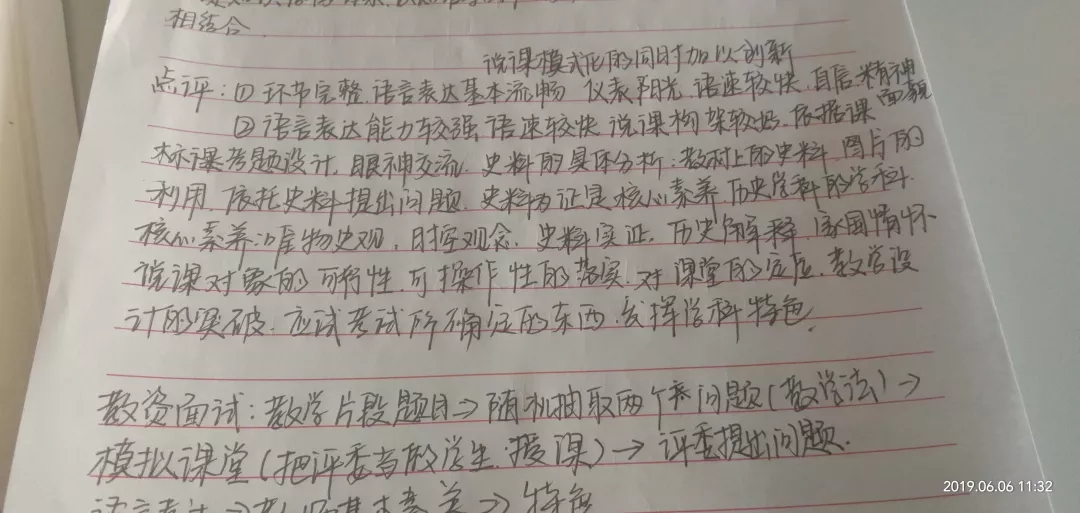 相结合.
说课模式化的同时加以创新
点评:① 环节完整.语言表达基本流畅 仪表阳光.语速较快.自信.精神面貌
② 语言表达能力较强.语速较快.说课构架较好.依据课
标课考题设计.眼神交流.史料的具体分析:教材上的史料.图片的
利用.依托史料提出问题.史料为证是核心素养.历史学科的学科
核心素养:唯物史观,时空观念.史料实证.历史解释.家国情怀
说课对象的可行性.可操作性的落实.对课堂的定位.教学设
计的突破.应试考试所确定的东西.发挥学科特色.
教资面试:教学片段题目→随机抽取两个问题(教学法)→
模拟课堂(把评委当做学生.授课)→评委提出问题.
语言表达→教师基本素养→特色
2019.06.06 11:32